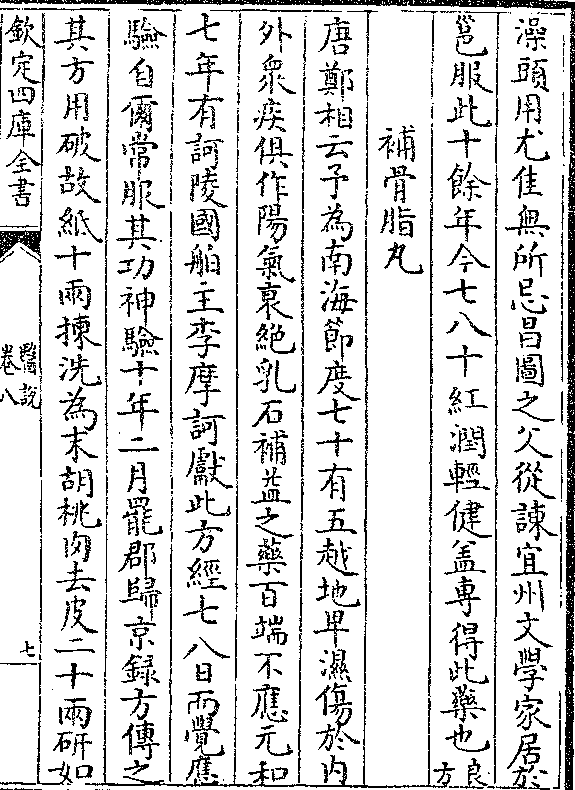 澡頭用尤佳無所忌昌圖之父從諫宜州文學家居於
邕服此十餘年今七八十紅潤輕健盖專得此藥也良方
補骨脂丸
唐鄭相云予為南海節度七十有五越地卑濕傷於内
外衆疾俱作陽氣衰絶乳石補益之藥百端不應元和
七年有訶陵國舶主李摩訶獻此方經七八日而覺應
驗自爾常服其功神驗十年二月罷郡歸京録方傳之
其方用破故紙十兩揀洗為末胡桃肉去皮二十兩研如
欽定四庫全書
醫説
卷八
七